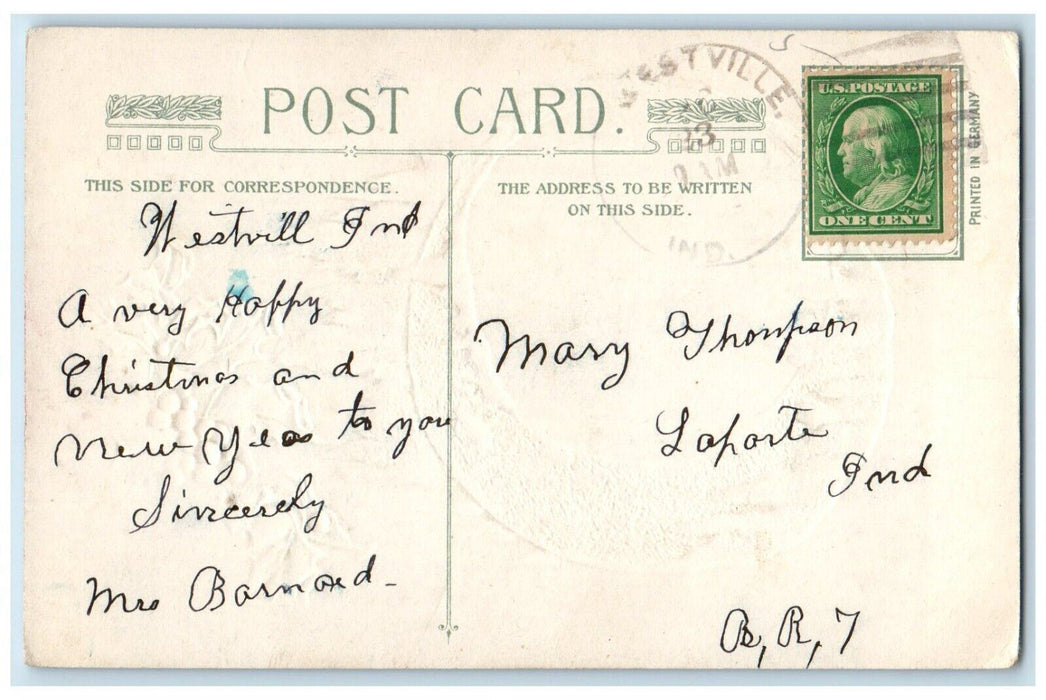 POST CARD.
WESTVILLE.
23
AM
IND.
U.S. POSTAGE
ONE CENT
PRINTED IN GERMANY
THIS SIDE FOR CORRESPONDENCE.
Westvill Ind
A very Happy
Christmas and
New Yeas to you
Sincerely
Mrs Barnard-
THE ADDRESS TO BE WRITTEN
ON THIS SIDE.
Mary Thompson
Laporte
Ind
R, 7